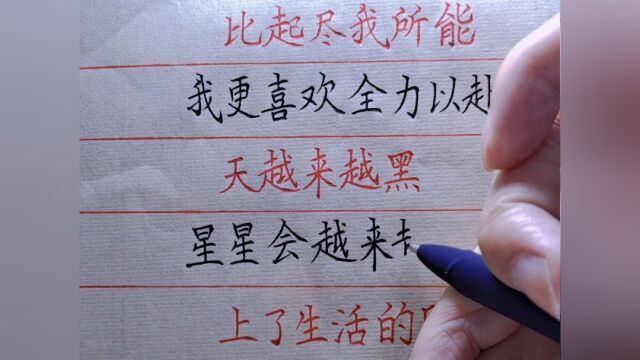 比起尽我所能
我更喜欢全力以赴
天越来越黑
星星会越来
上了生活的